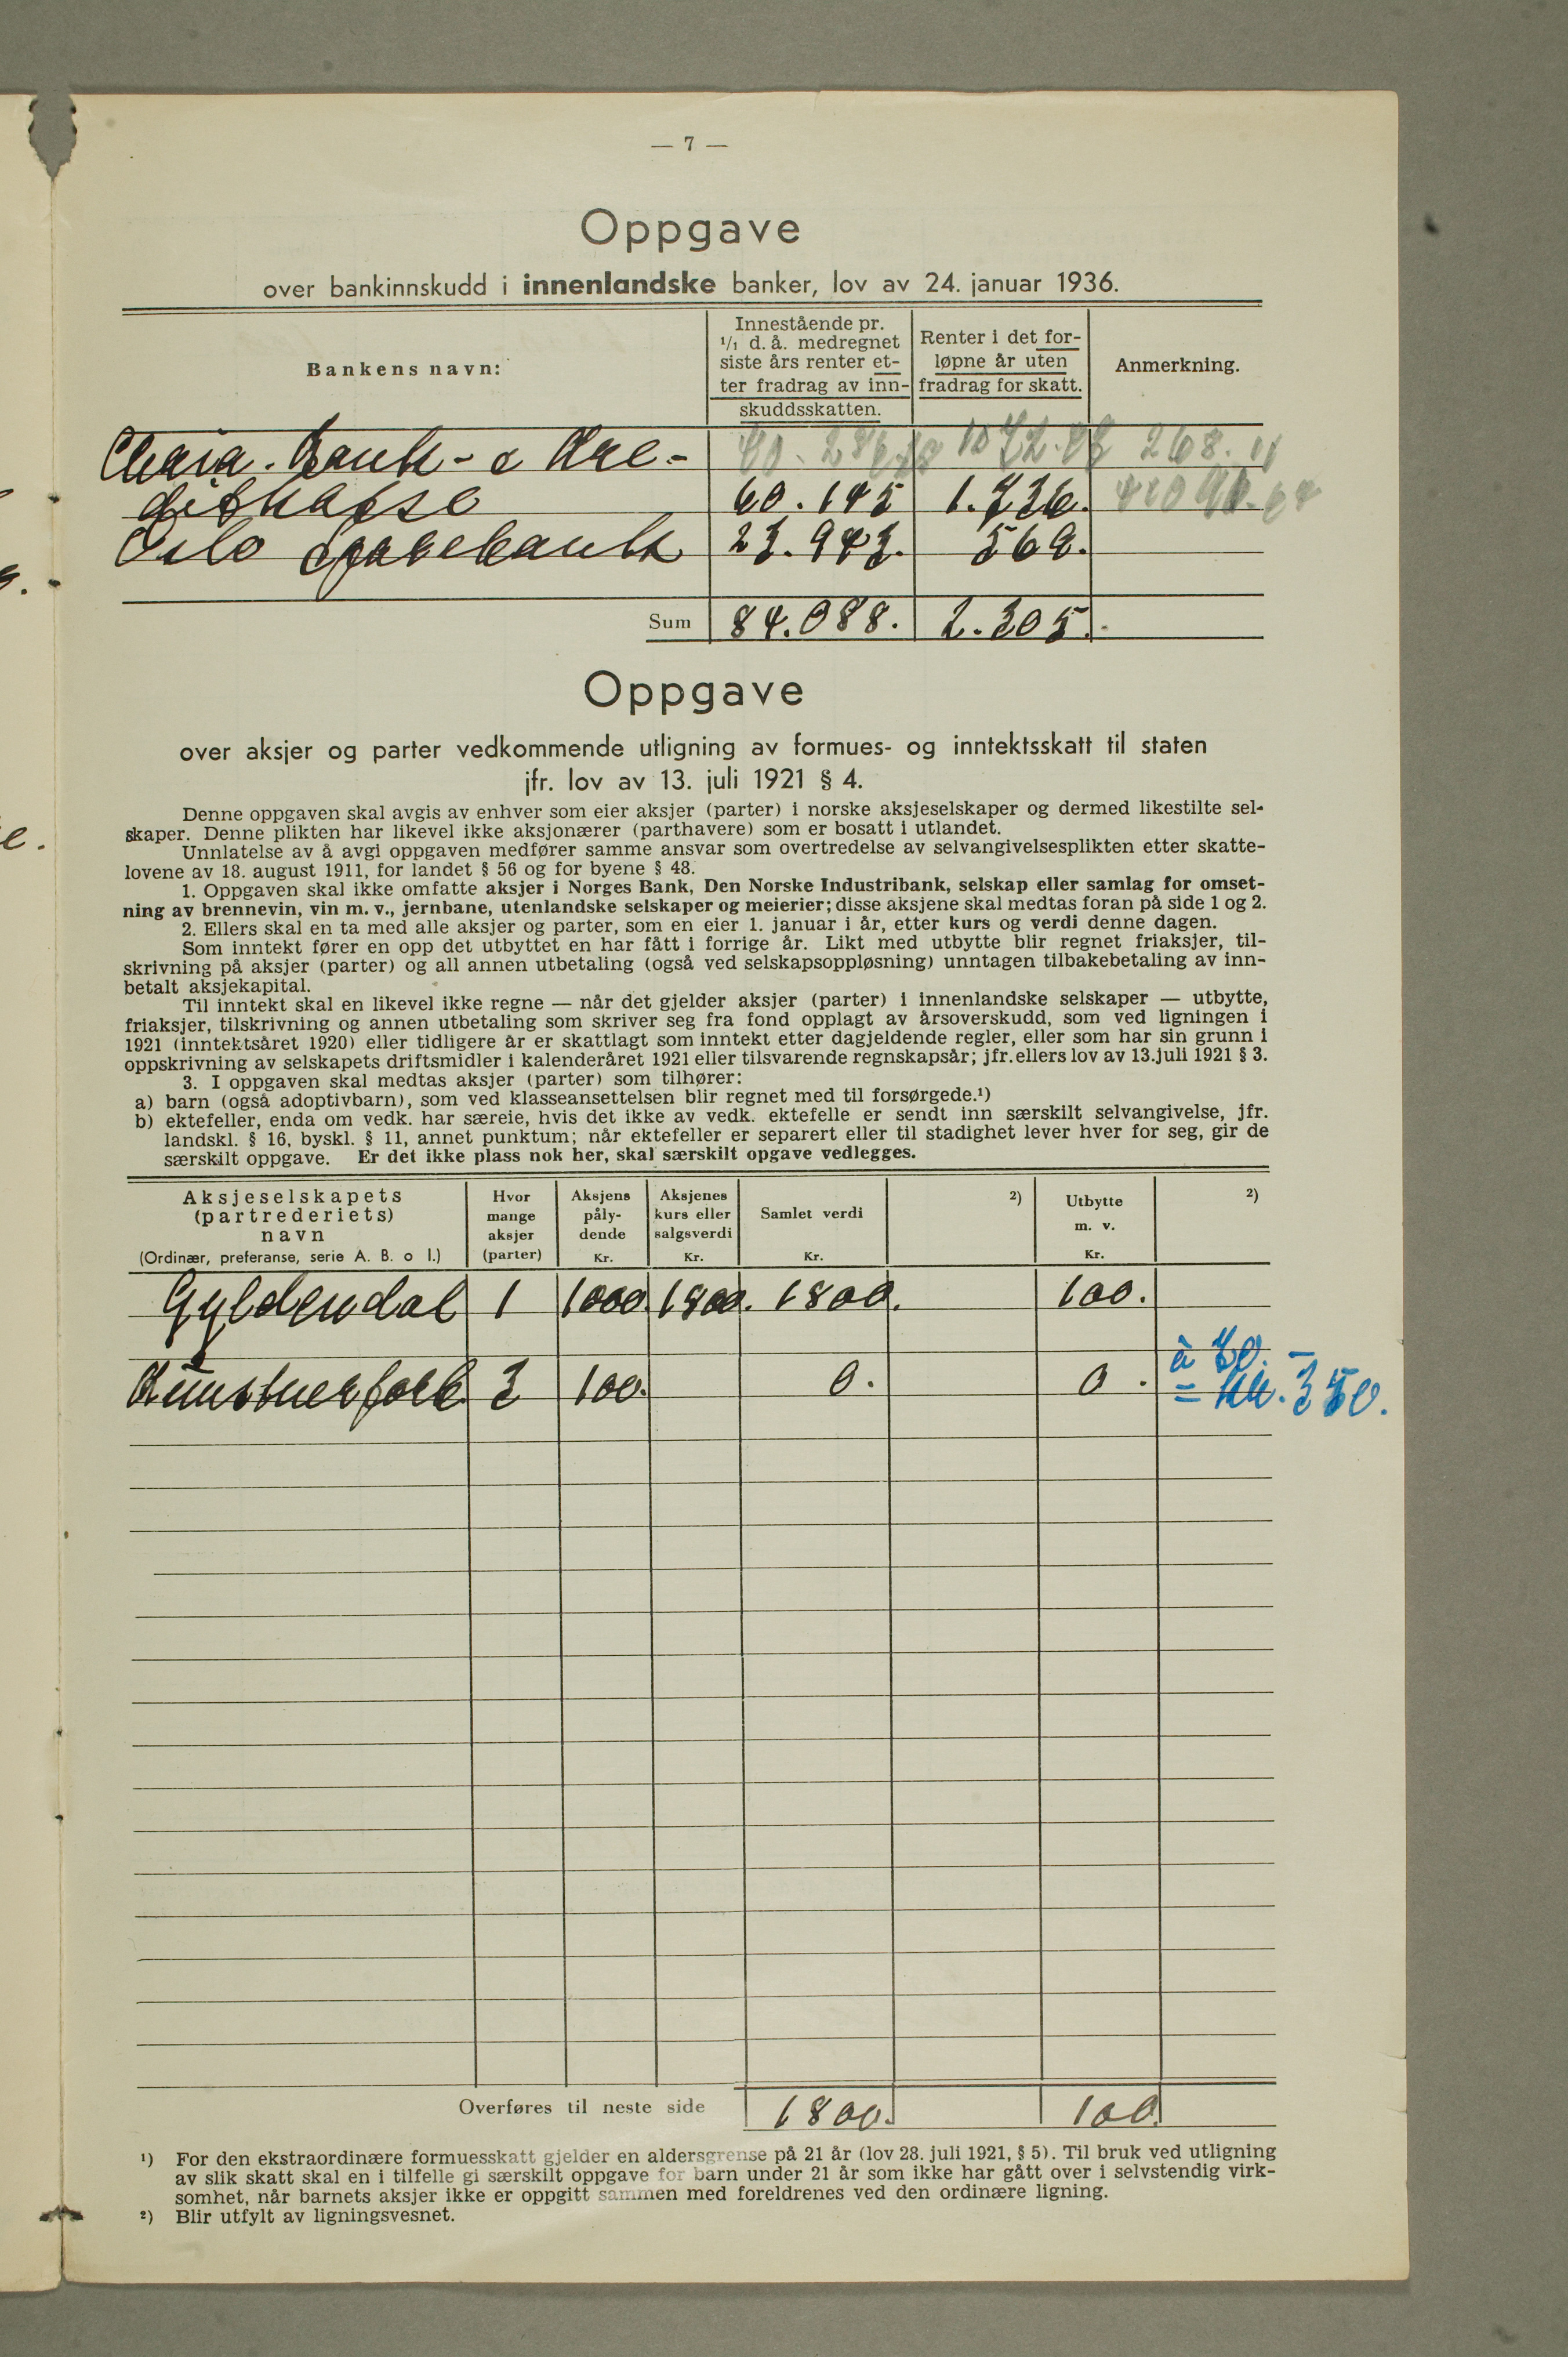 — 7 —
Oppgave
over bankinnskudd i innenlandske banker, lov av 24. januar 1936.
Bankens navn:
Innestående pr. 1/1 d. å. medregnet siste års renter etter fradrag av innskuddsskatten.
Renter i det forløpne år uten fradrag for skatt.
Anmerkning.
268.11
Chria. Bank- o Kre-
ditkasse 60.145 1.736.
Oslo Sparebank 23.943. 569.
Sum 84.088. 2.305.
Oppgave
over aksjer og parter vedkommende utligning av formues- og inntektsskatt til staten
jfr. lov av 13. juli 1921 § 4.
Denne oppgaven skal avgis av enhver som eier aksjer (parter) i norske aksjeselskaper og dermed likestilte sel-
skaper. Denne plikten har likevel ikke aksjonærer (parthavere) som er bosatt i utlandet.
Unnlatelse av å avgi oppgaven medfører samme ansvar som overtredelse av selvangivelsesplikten etter skatte-
lovene av 18. august 1911, for landet § 56 og for byene § 48.
1. Oppgaven skal ikke omfatte aksjer i Norges Bank, Den Norske Industribank, selskap eller samlag for omset-
ning av brennevin, vin m. v., jernbane, utenlandske selskaper og meierier; disse aksjene skal medtas foran på side 1 og 2.
2. Ellers skal en ta med alle aksjer og parter, som en eier 1. januar i år, etter kurs og verdi denne dagen.
Som inntekt fører en opp det utbyttet en har fått i forrige år. Likt med utbytte blir regnet friaksjer, til-
skrivning på aksjer (parter) og all annen utbetaling (også ved selskapsoppløsning) unntagen tilbakebetaling av inn-
betalt aksjekapital.
Til inntekt skal en likevel ikke regne — når det gjelder aksjer (parter) i innenlandske selskaper — utbytte,
friaksjer, tilskrivning og annen utbetaling som skriver seg fra fond opplagt av årsoverskudd, som ved ligningen i
1921 (inntektsåret 1920) eller tidligere år er skattlagt som inntekt etter dagjeldende regler, eller som har sin grunn i
oppskrivning av selskapets driftsmidler i kalenderåret 1921 eller tilsvarende regnskapsår; jfr. ellers lov av 13. juli 1921 § 3.
3. I oppgaven skal medtas aksjer (parter) som tilhører:
a) barn (også adoptivbarn), som ved klasseansettelsen blir regnet med til forsørgede.¹)
b) ektefeller, enda om vedk. har særeie, hvis det ikke av vedk. ektefelle er sendt inn særskilt selvangivelse, jfr.
landskl. § 16, byskl. § 11, annet punktum; når ektefeller er separert eller til stadighet lever hver for seg, gir de
særskilt oppgave. Er det ikke plass nok her, skal særskilt opgave vedlegges.
Aksjeselskapets
(partrederiets)
navn
(Ordinær, preferanse, serie A. B. o l.)
Hvor mange aksjer (parter)
Aksjens pålydende Kr.
Aksjenes kurs eller salgsverdi Kr.
Samlet verdi Kr.
²)
Utbytte m. v. Kr.
²)
Gyldendal 1 1000. 1800. 1800. 100.
à 70.–
Kunstnerforb. 3 100. 0. 0. = Kr. 350.
Overføres til neste side 1800. 100.
¹) For den ekstraordinære formuesskatt gjelder en aldersgrense på 21 år (lov 28. juli 1921, § 5). Til bruk ved utligning
av slik skatt skal en i tilfelle gi særskilt oppgave for barn under 21 år som ikke har gått over i selvstendig virk-
somhet, når barnets aksjer ikke er oppgitt sammen med foreldrenes ved den ordinære ligning.
²) Blir utfylt av ligningsvesnet.